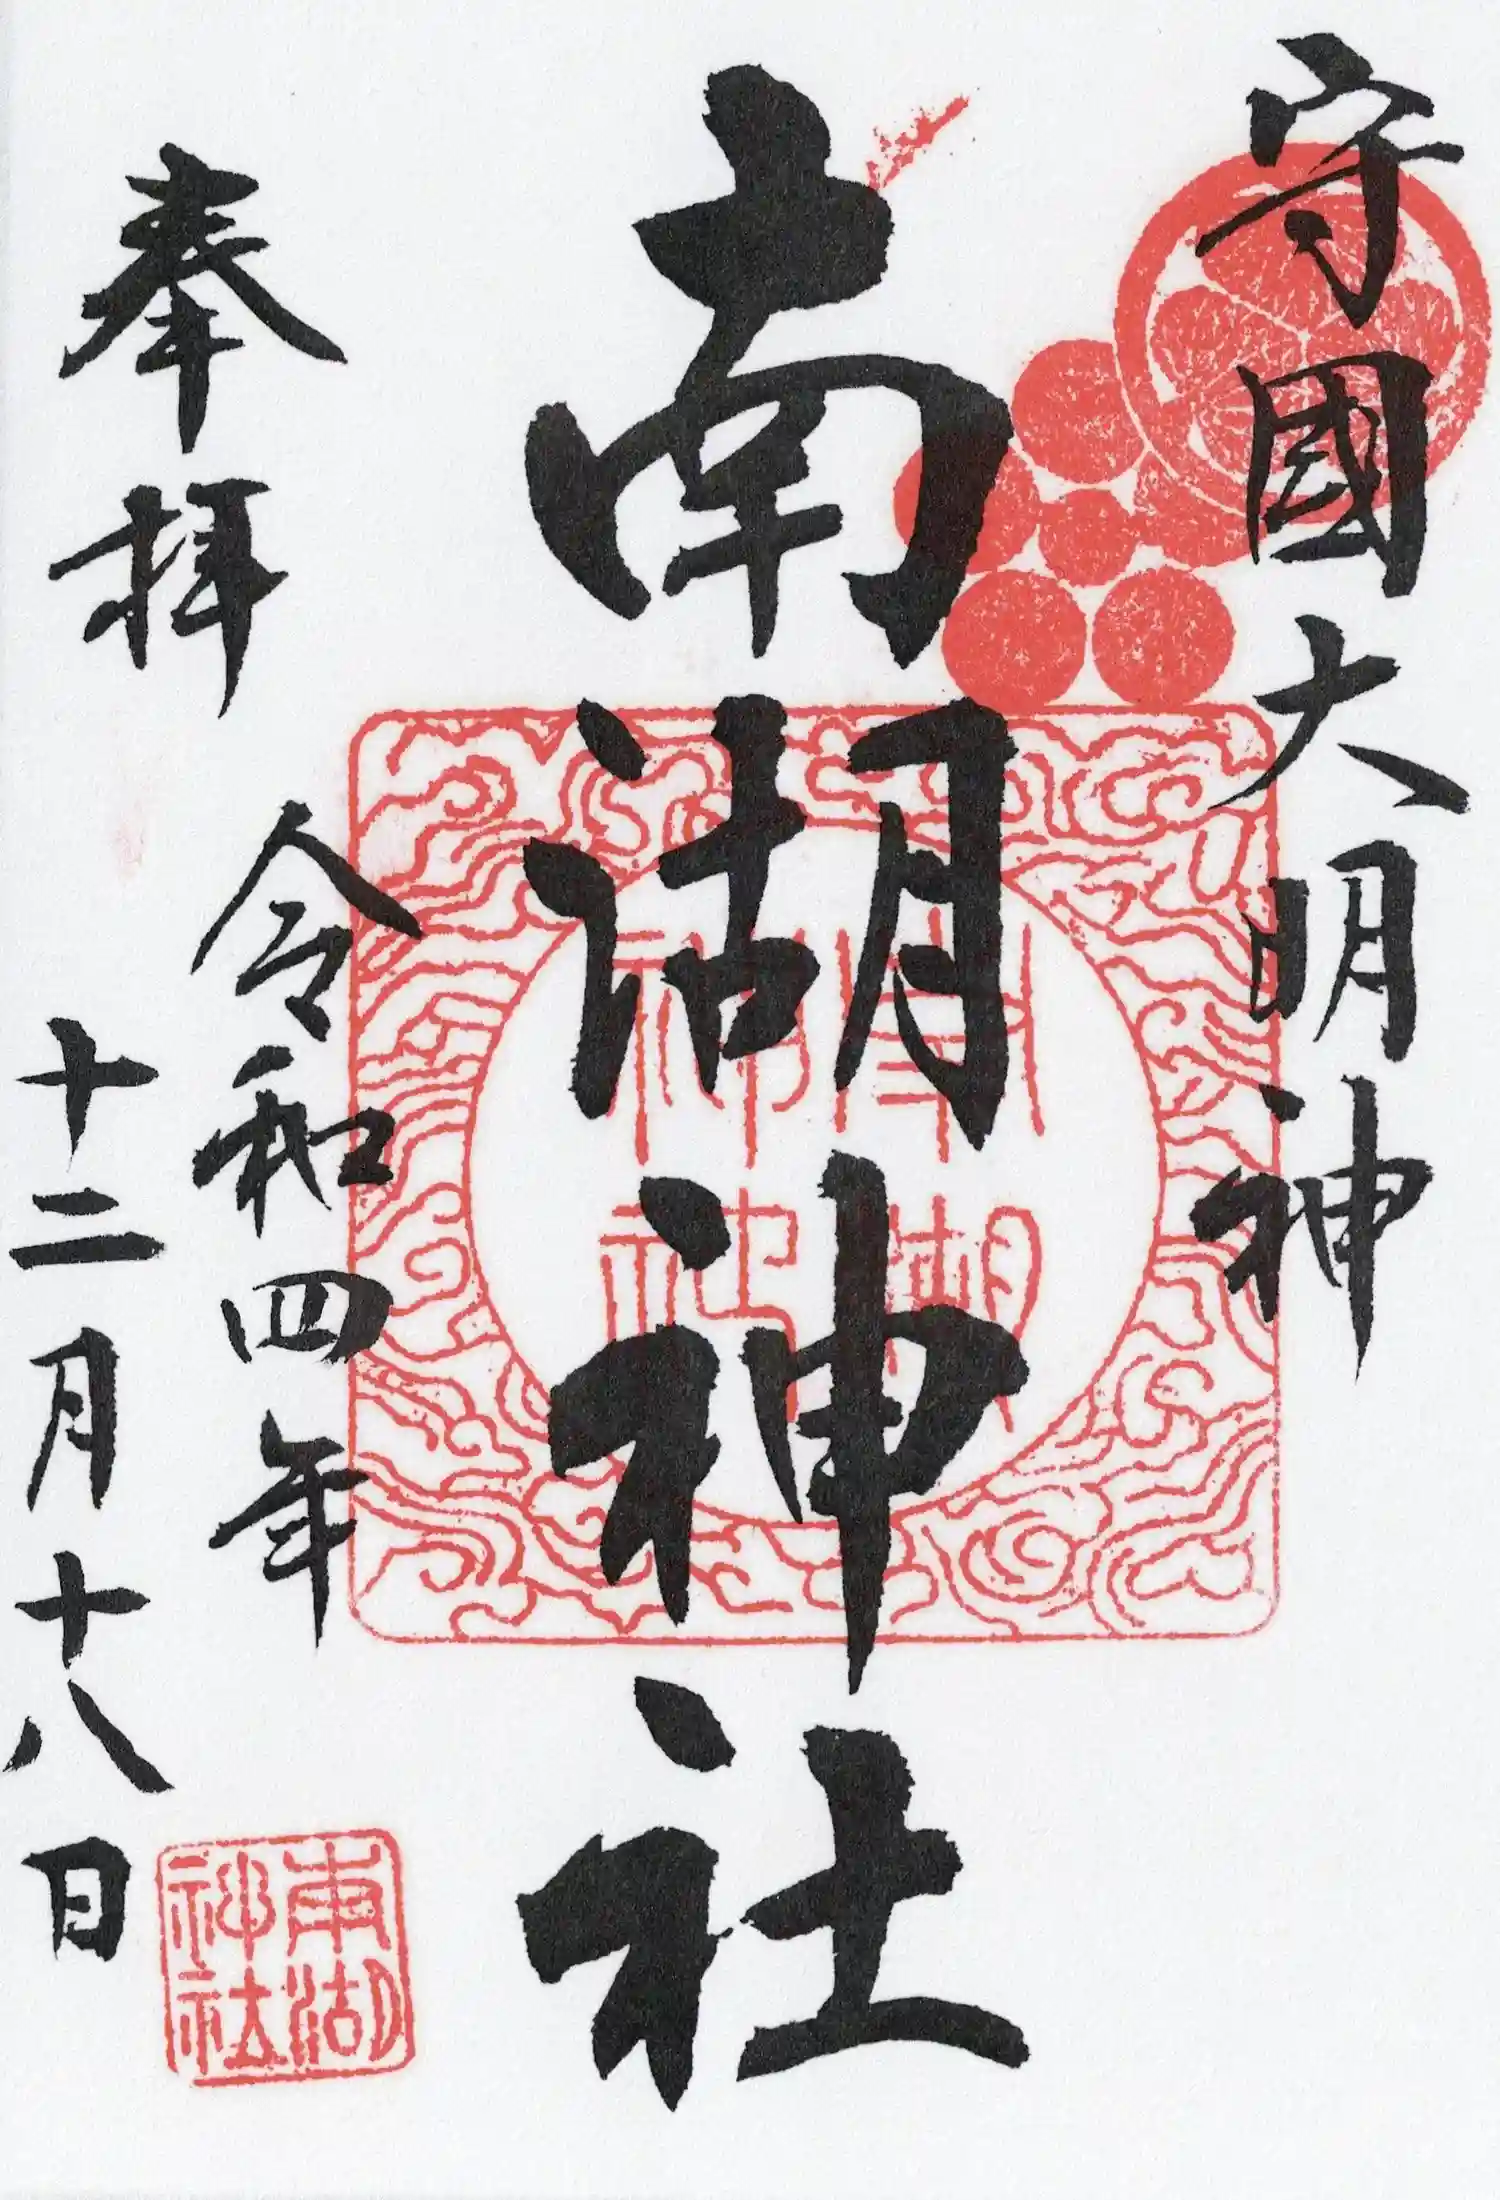 守國大明神
南湖神社
奉拝
令和四年
十二月十八日
南湖神社
南湖神社